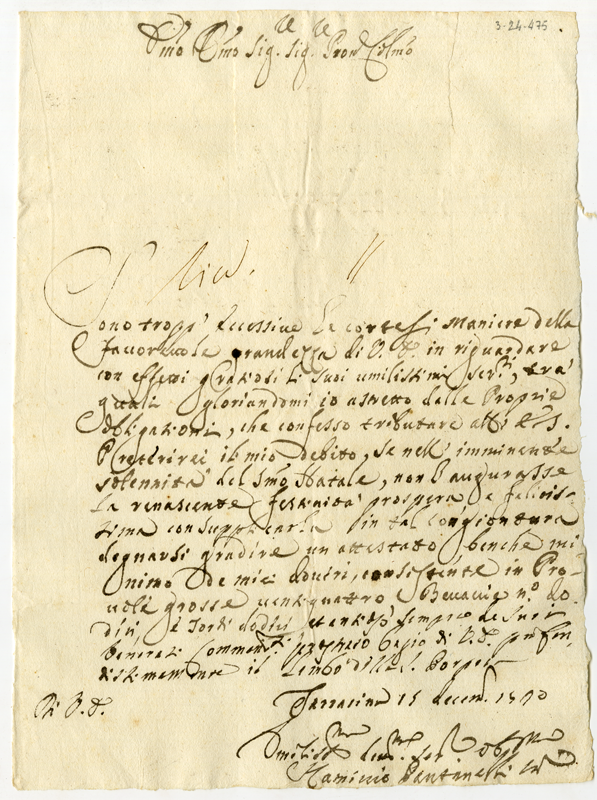 3-24-475
Sig. Sig. Pron Colmo
Sono tropp' eccessive le cortesi maniere della
favorevole grandezza di V. E. in riguardare
con effetti gratiosi li suoi umilissimi Ser.ri, tra
quali gloriandomi io astretto dalle Proprie
obligationi, che confesso tributare
Preterirei il mio debito, se nell' imminente
solennità del Smo Natale, non l'augurasse
la renascente festività prospera e felicis-
sima con supplicarla in tal congiontura
degnarsi gradire un attestato benche mi-
nimo de miei doveri, consistente in Pro-
vole grosse ventiquattro e Beccacie n.o do-
dici, e Tordi dodici et de suoi
venerati bacio di V. E.
il Lembo della
Di V. E.
Terracina 15 decem.